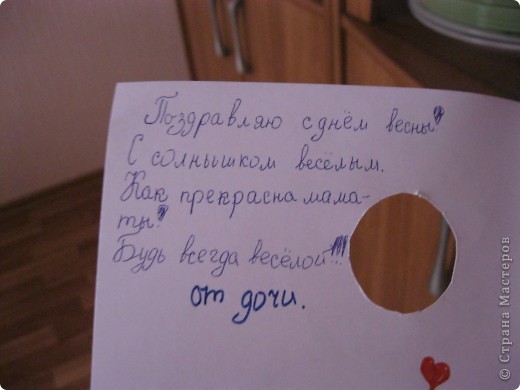 Поздравляю с днём весны!
С солнышком весёлым.
Как прекрасна мама-
ты!
Будь всегда весёлой!!!
от дочи.
© Страна Мастеров